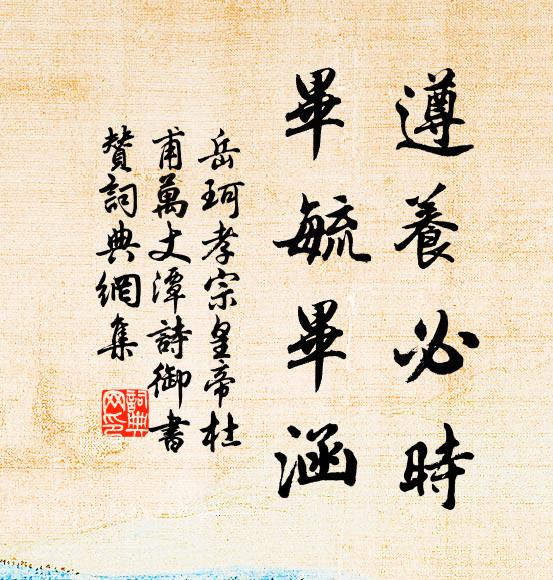 遵養必時
畢毓畢涵
岳珂孝宗皇帝杜
甫萬丈潭詩御書
贊詞典網集
詞典
网印